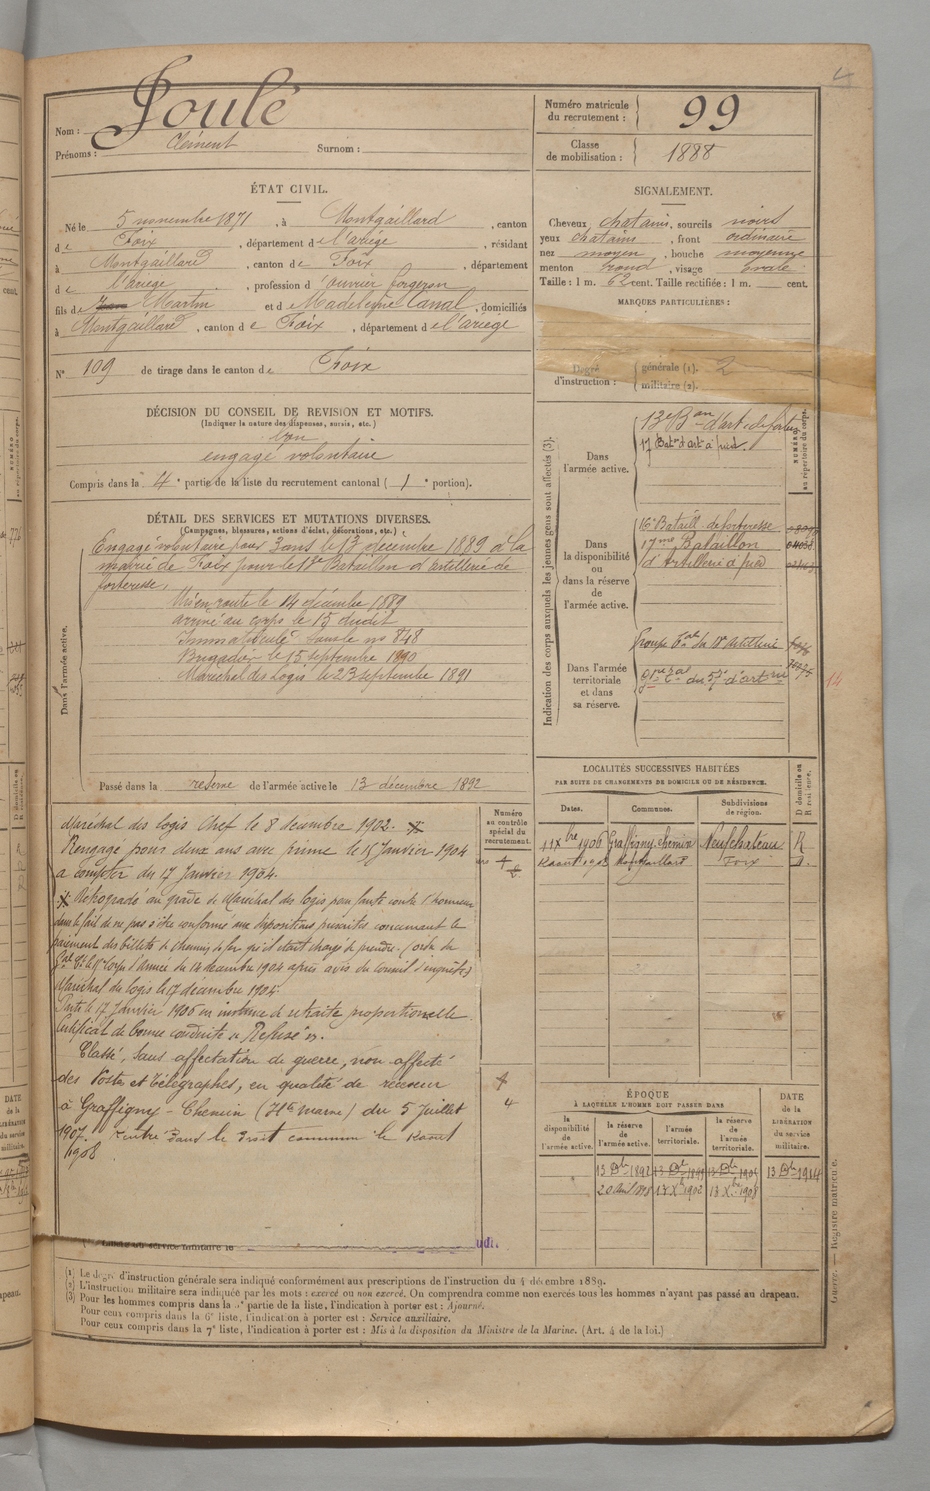 4
Nom : Soulé
Prénoms : Clément Surnom :
Numéro matricule du recrutement : 99
Classe de mobilisation : 1888
ÉTAT CIVIL.
Né le 5 novembre 1871, à Montgaillard, canton
de Foix, département de l'ariège, résidant
à Montgaillard, canton de Foix, département
de l'ariège, profession d'ouvrier forgeron
fils de Martin et de Madeleine Canal, domiciliés
à Montgaillard, canton de Foix, département de l'ariège
N° 109 de tirage dans le canton de Foix
SIGNALEMENT.
Cheveux chatains, sourcils noirs
yeux chatains, front ordinaire
nez moyen, bouche moyenne
menton rond, visage ovale
Taille : 1 m. 62 cent. Taille rectifiée : 1 m. cent.
MARQUES PARTICULIÈRES :
Degré d'instruction : générale (1). 2
militaire (2).
DÉCISION DU CONSEIL DE REVISION ET MOTIFS.
(Indiquer la nature des dispenses, sursis, etc.)
bon
engagé volontaire
Compris dans la 4e partie de la liste du recrutement cantonal (1e portion).
DÉTAIL DES SERVICES ET MUTATIONS DIVERSES.
(Campagnes, blessures, actions d'éclat, décorations, etc.)
Dans l'armée active.
Engagé volontaire pour 3 ans le 13 décembre 1889 à la
mairie de Foix pour le Bataillon d'artillerie de
forteresse.
Mis en route le 14 décembre 1889
arrivé au corps le 15 dudit
Immatriculé sous le no 848
Brigadier le 15 septembre 1890
Maréchal des Logis le 23 septembre 1891
Passé dans la réserve de l'armée active le 13 décembre 1892
Indication des corps auxquels les jeunes gens sont affectés (3).
NUMÉRO au répertoire du corps.
Dans l'armée active.
13e Bon d'art. de forter.
17 Baton d'art. à pied.
Dans la disponibilité ou dans la réserve de l'armée active.
16e Bataill. de forteresse
17me Bataillon
d'Artillerie à pied
Dans l'armée territoriale et dans sa réserve.
Groupe du 18e Artillerie
du d'artrie
14
Maréchal des logis Chef le 8 décembre 1902.
Rengagé pour deux ans avec prime le 15 Janvier 1904
à compter du 17 Janvier 1904.
Rétrogradé au grade de Maréchal des logis pour faute contre l'honneur
dans le fait de ne pas s'être conformé aux dispositions prescrites concernant le
paiement des billets de chemin de fer qu'il était chargé de prendre. (ordre du
Corps d'Armée du 14 décembre 1904 après avis du Conseil d'enquête)
Maréchal des logis le 17 décembre 1904.
Parti le 17 Janvier 1906 en instance de retraite proportionnelle.
Certificat de bonne conduite "Refusé".
Classé, sans affectation de guerre, non affecté
des Postes et télégraphes, en qualité de receveur
à Graffigny-Chemin (Hte Marne) du 5 Juillet
1907. rentré dans le Droit commun le août
1908
Numéro au contrôle spécial du recrutement.
4
4
4
LOCALITÉS SUCCESSIVES HABITÉES
PAR SUITE DE CHANGEMENTS DE DOMICILE OU DE RÉSIDENCE.
Dates. Communes. Subdivisions de région. D domicile ou R résidence.
11 Xbre 1906 Graffigny-chemin Neufchateau R
août 1908 Montgaillard Foix D.
ÉPOQUE
À LAQUELLE L'HOMME DOIT PASSER DANS
la disponibilité de l'armée active. la réserve de l'armée active. l'armée territoriale. la réserve de l'armée territoriale.
DATE de la LIBÉRATION du service militaire.
13 Dbre 1892 13 Dbre 1899 13 Dbre 1905 13 Dbre 1914
20 avril 13 Xbre 1902 13 Xbre 1908
du service militaire le
(1) Le degré d'instruction générale sera indiqué conformément aux prescriptions de l'instruction du 4 décembre 1889.
(2) L'instruction militaire sera indiquée par les mots : exercé ou non exercé. On comprendra comme non exercés tous les hommes n'ayant pas passé au drapeau.
(3) Pour les hommes compris dans la partie de la liste, l'indication à porter est : Ajourné.
Pour ceux compris dans la 6e liste, l'indication à porter est : Service auxiliaire.
Pour ceux compris dans la 7e liste, l'indication à porter est : Mis à la disposition du Ministre de la Marine. (Art. 4 de la loi.)
Guerre. — Registre matricule.